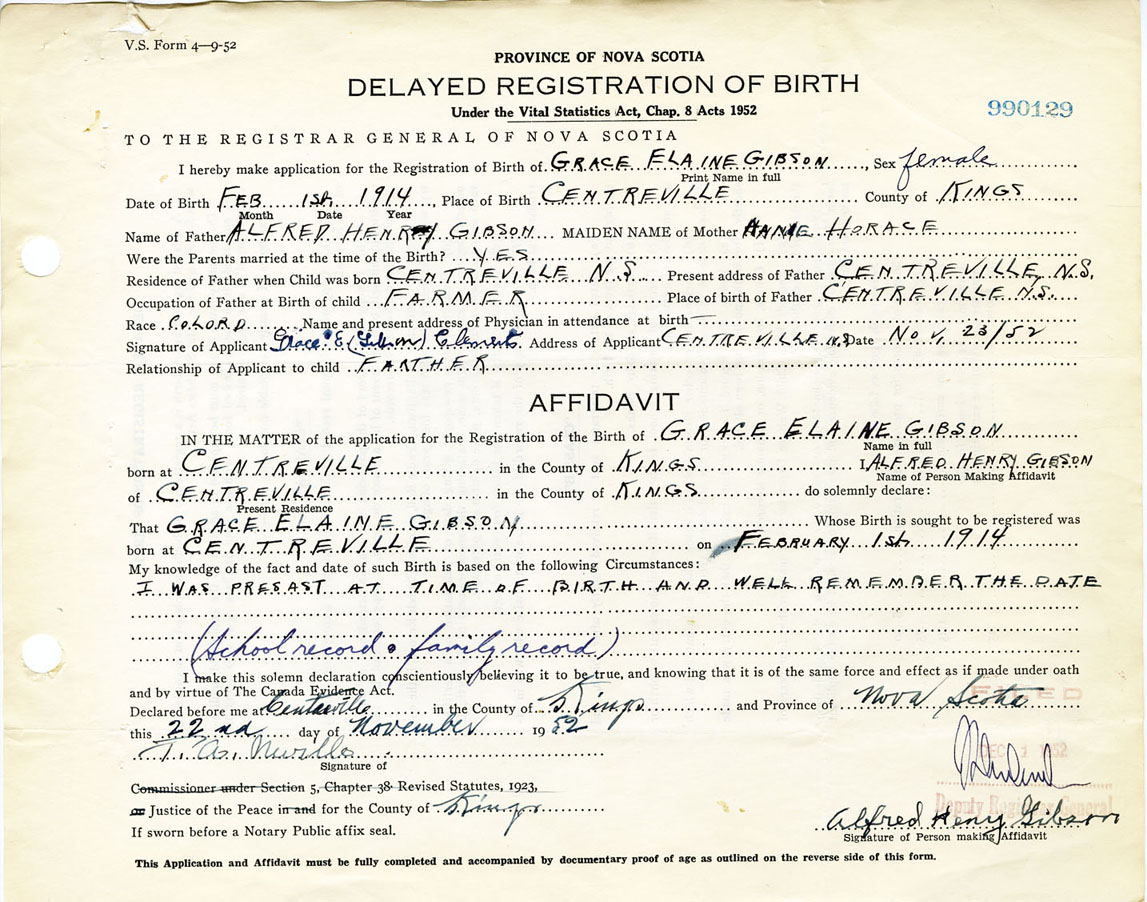 V.S. Form 4—9-52
PROVINCE OF NOVA SCOTIA
DELAYED REGISTRATION OF BIRTH
Under the Vital Statistics Act, Chap. 8 Acts 1952
990129
TO THE REGISTRAR GENERAL OF NOVA SCOTIA
I hereby make application for the Registration of Birth of GRACE ELAINE GIBSON, Sex female
Print Name in full
Date of Birth FEB 1st 1914, Place of Birth CENTREVILLE County of KINGS
Month Date Year
Name of Father ALFRED HENRY GIBSON MAIDEN NAME of Mother ANNIE HORACE
Were the Parents married at the time of the Birth? YES
Residence of Father when Child was born CENTREVILLE N.S. Present address of Father CENTREVILLE N.S.
Occupation of Father at Birth of child FARMER Place of birth of Father CENTREVILLE N.S.
Race COLORD Name and present address of Physician in attendance at birth —
Signature of Applicant Grace E (Gibson) Clements Address of Applicant CENTREVILLE N.S Date NOV. 23/52
Relationship of Applicant to child FARTHER
AFFIDAVIT
IN THE MATTER of the application for the Registration of the Birth of GRACE ELAINE GIBSON
Name in full
born at CENTREVILLE in the County of KINGS I, ALFRED HENRY GIBSON
Name of Person Making Affidavit
of CENTREVILLE in the County of KINGS do solemnly declare:
Present Residence
That GRACE ELAINE GIBSON Whose Birth is sought to be registered was
born at CENTREVILLE on FEBRUARY 1st 1914
My knowledge of the fact and date of such Birth is based on the following Circumstances:
I WAS PRESAST AT TIME OF BIRTH AND WELL REMEMBER THE DATE
(School record • family record)
I make this solemn declaration conscientiously believing it to be true, and knowing that it is of the same force and effect as if made under oath
and by virtue of The Canada Evidence Act.
Declared before me at Centreville in the County of Kings and Province of Nova Scotia
this 22nd day of November 1952
Signature of
Commissioner under Section 5, Chapter 38 Revised Statutes, 1923,
DEC 1 1952
or Justice of the Peace in and for the County of Kings
Deputy Registrar General
Alfred Henry Gibson
If sworn before a Notary Public affix seal.
Signature of Person making Affidavit
This Application and Affidavit must be fully completed and accompanied by documentary proof of age as outlined on the reverse side of this form.